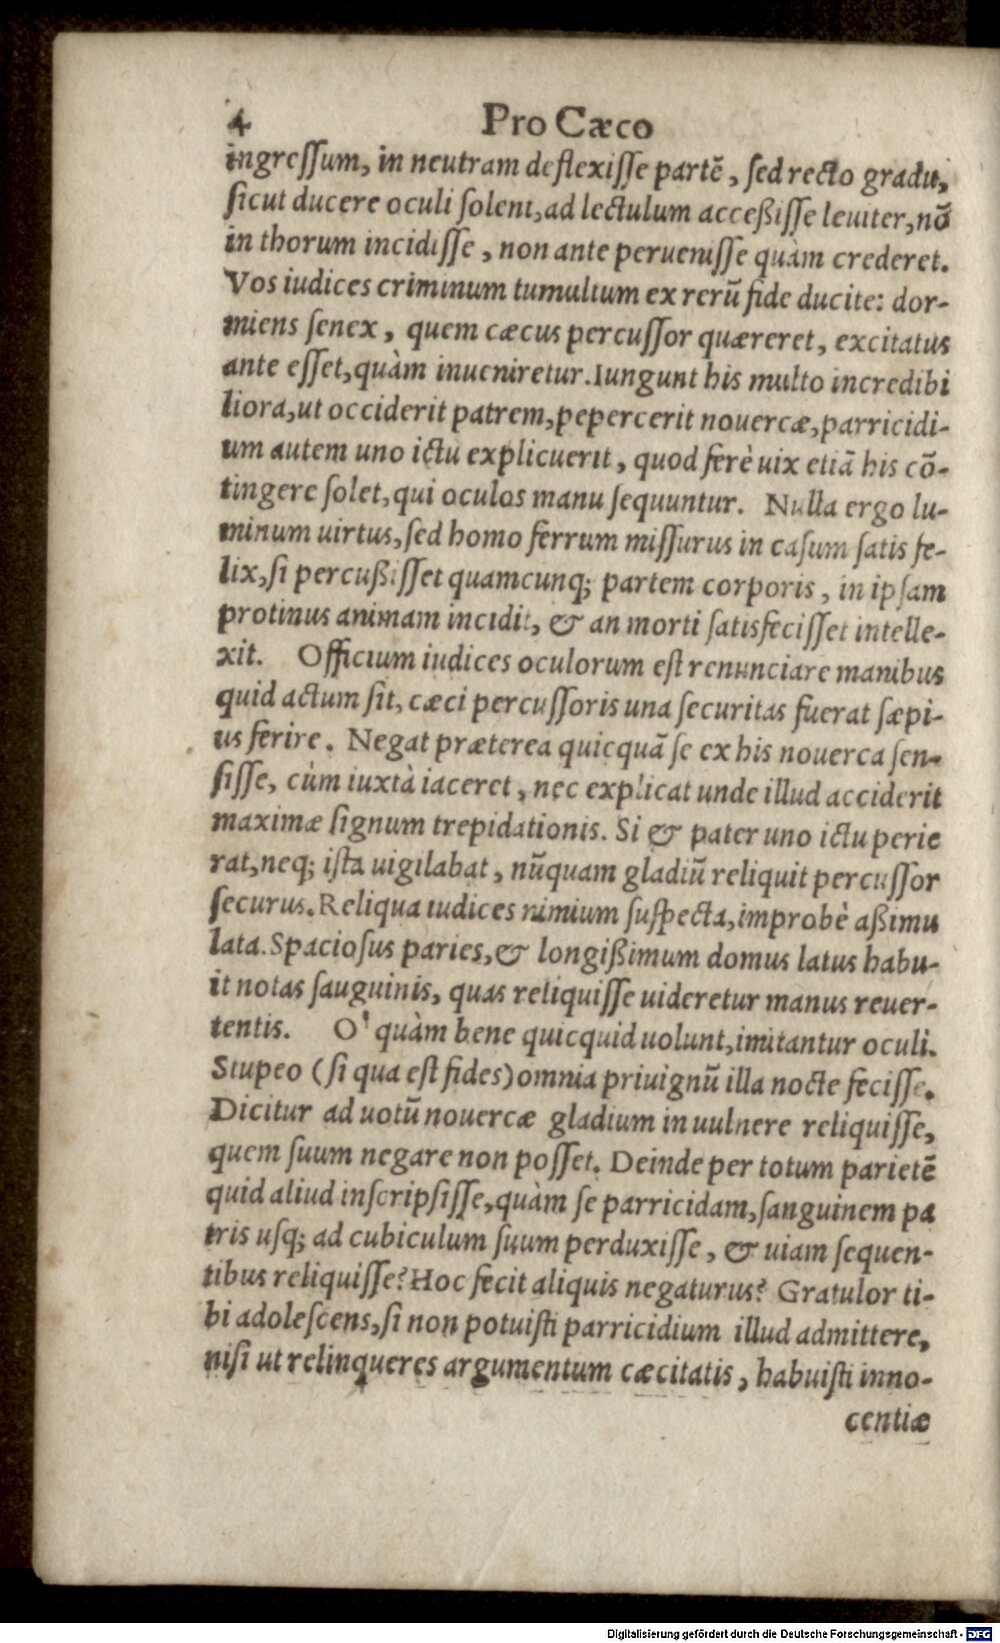 4 Pro Cæco
ingreſſum, in neutram deflexiſſe partē, ſed recto gradu,
ſicut ducere oculi ſolent, ad lectulum acceßiſſe leuiter, nō
in thorum incidiſſe, non ante perueniſſe quàm crederet.
Vos iudices criminum tumultum ex rerū fide ducite: dor-
miens ſenex, quem cæcus percuſſor quæreret, excitatus
ante eſſet, quàm inueniretur. Iungunt his multo incredibi
liora, ut occiderit patrem, pepercerit nouercæ, parricidi-
um autem uno ictu explicuerit, quod ferè uix etiā his cō-
tingere ſolet, qui oculos manu ſequuntur. Nulla ergo lu-
minum uirtus, ſed homo ferrum miſſurus in caſum ſatis fe-
lix, ſi percußiſſet quamcunq; partem corporis, in ipſam
protinus animam incidit, & an morti ſatisfeciſſet intelle-
xit. Officium iudices oculorum eſt renunciare manibus
quid actum ſit, cæci percuſſoris una ſecuritas fuerat ſæpi-
us ferire. Negat præterea quicquā ſe ex his nouerca ſen-
ſiſſe, cùm iuxtà iaceret, nec explicat unde illud acciderit
maximæ ſignum trepidationis. Si & pater uno ictu perie
rat, neq; iſta uigilabat, nūquam gladiū reliquit percuſſor
ſecurus. Reliqua iudices nimium ſuſpecta, improbè aßimu
lata. Spacioſus paries, & longißimum domus latus habu-
it notas ſauguinis, quas reliquiſſe uideretur manus reuer-
tentis. O' quàm bene quicquid uolunt, imitantur oculi.
Stupeo (ſi qua eſt fides) omnia priuignū illa nocte feciſſe.
Dicitur ad uotū nouercæ gladium in uulnere reliquiſſe,
quem ſuum negare non poſſet. Deinde per totum parietē
quid aliud inſcripſiſſe, quàm ſe parricidam, ſanguinem pa
tris uſq; ad cubiculum ſuum perduxiſſe, & uiam ſequen-
tibus reliquiſſe? Hoc fecit aliquis negaturus? Gratulor ti-
bi adoleſcens, ſi non potuiſti parricidium illud admittere,
niſi ut relinqueres argumentum cæcitatis, habuiſti inno-
centiæ
Digitalisierung gefördert durch die Deutsche Forschungsgemeinschaft - DFG